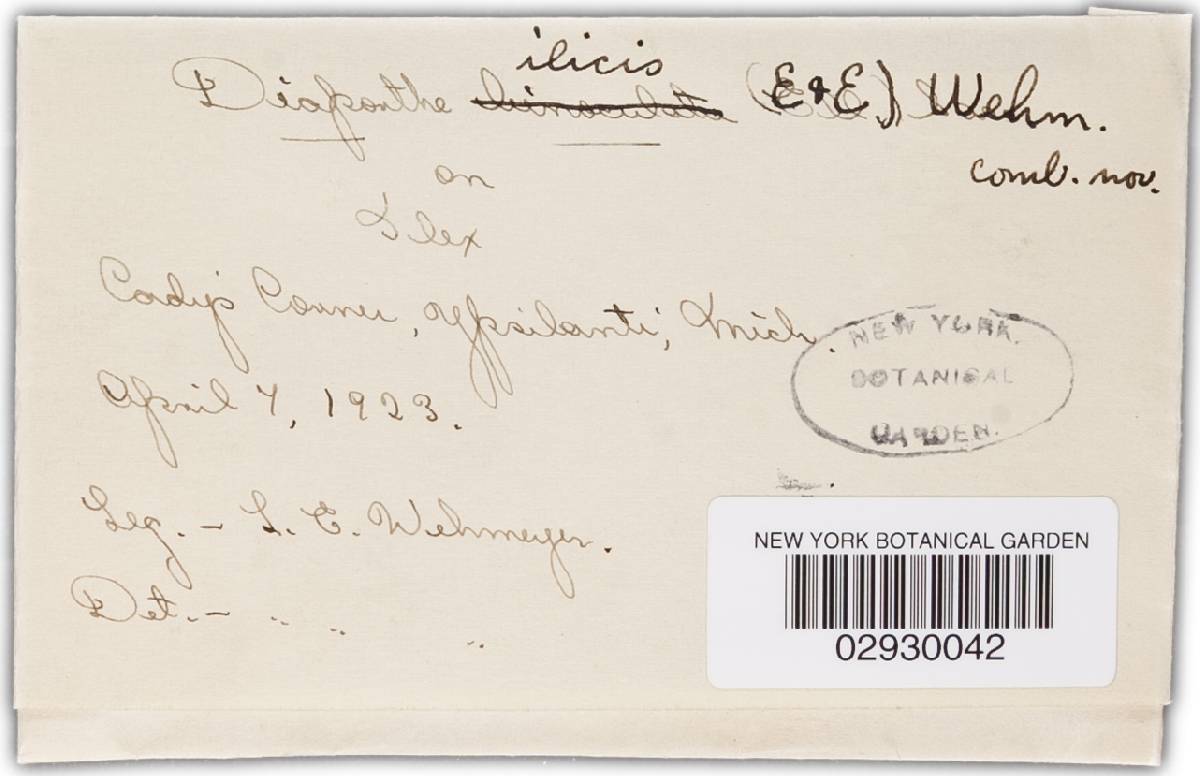 Diaporthe ilicis (E&E) Wehm.
comb. nov.
on
Ilex
Cady's Corner, Ypsilanti, Mich.
April 7, 1923.
Leg. - L. E. Wehmeyer.
Det. - " " "
NEW YORK
BOTANICAL
GARDEN.
NEW YORK BOTANICAL GARDEN
02930042